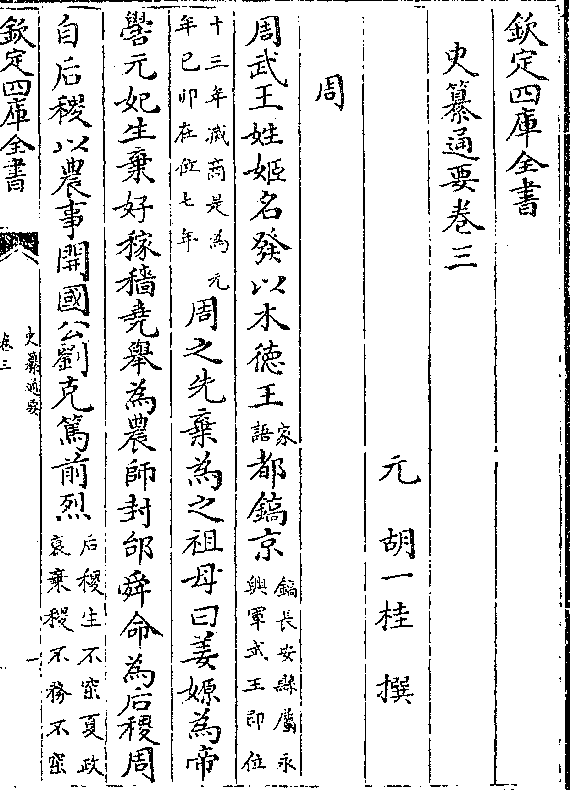 欽定四庫全書
史纂通要卷三
元 胡一桂 撰
周
周武王姓姬名發以木德王家語都鎬京鎬長安縣屬永興軍武王即位
十三年滅商是為元年巳卯在位七年周之先棄為之祖母曰姜嫄為帝
嚳元妃生棄好稼穡堯舉為農師封邰舜命為后稷周
自后稷以農事開國公劉克篤前烈后稷生不窋夏政衰棄稷不務不窋
欽定四庫全書
史纂通要
卷三
一